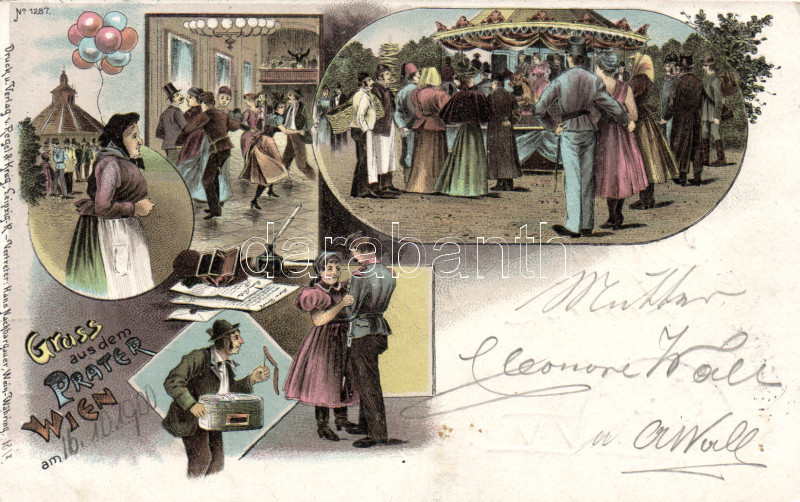 No 1287.
Druck u. Verlag v. Regel & Krug, Leipzig R. - Vertreter: Hans Nachbargauer, Wien-Währing,
Gruss
aus dem
PRATER
WIEN
am 16. 10. 1900
darabanth
.com
Mutter
Eleonore Wall
u. AWall